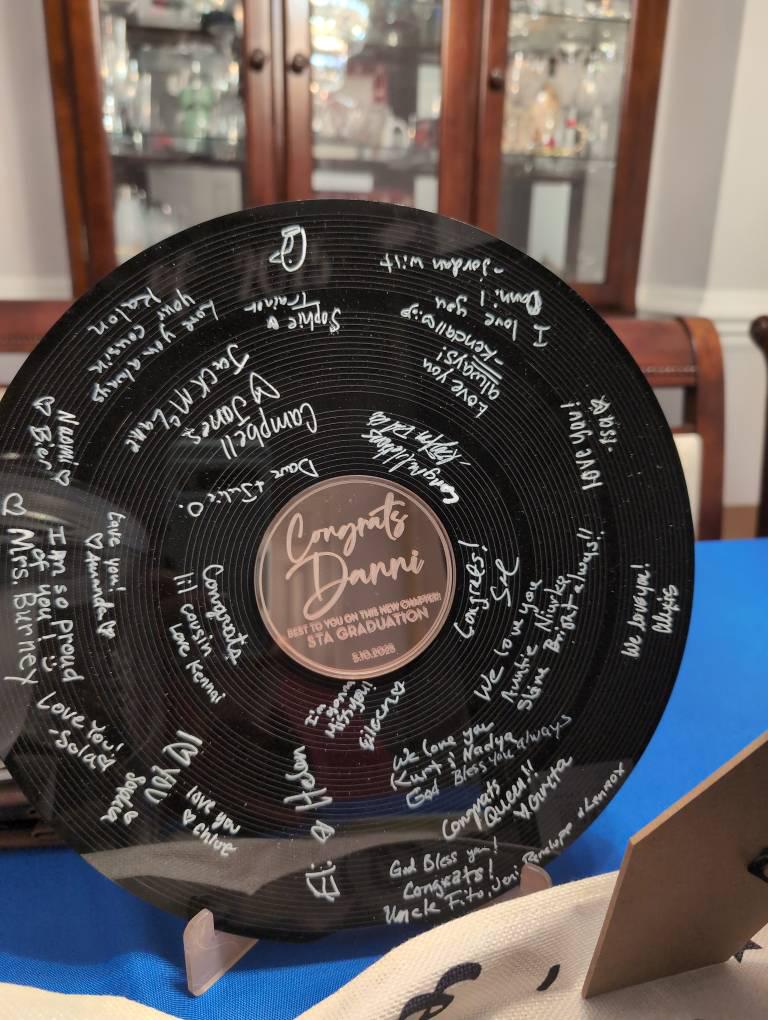 Congrats
Danni
BEST TO YOU ON THIS NEW CHAPTER!
STA GRADUATION
5.10.2025
-Jordan Wilt
Danni!
I love you
-Kendall
Love you
always!
Sophie
Trainor
Love you always
your cousin
Kalon
Jack McCane
Campbell
Jones
Dave + Julie O.
Congratulations
Love you!
Naomi
Bier
Love you!
Amanda
I am so proud
of you!
Mrs. Burney
Love You!
Sophia
love you
Chloe
Congrats
lil cousin
Love Kennai
I'm
gonna
Miss you!
Eileen
Helen
Eli
Congrats!
We love you
Auntie Nierka
Shine Bright always!!
We love you!
Alexis
We love you
Kurt & Nadya
God Bless You always
Congrats
Queen!!
God Bless you!
Congrats!
Uncle Fito, Jeri Penelope + Lennox